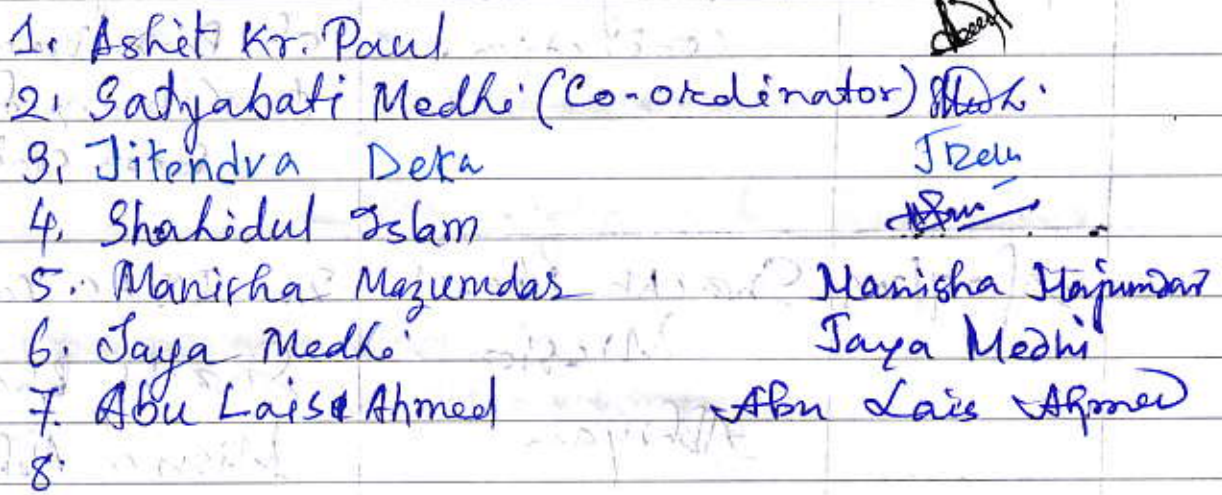 1. Ashit Kr. Paul
2. Satyabati Medhi (Co-ordinator) Medhi
3. Jitendra Deka JDeka
4. Shahidul Islam
5. Manisha Mazumdar Manisha Majumdar
6. Jaya Medhi Jaya Medhi
7. Abu Lais Ahmed Abu Lais Ahmed
8.